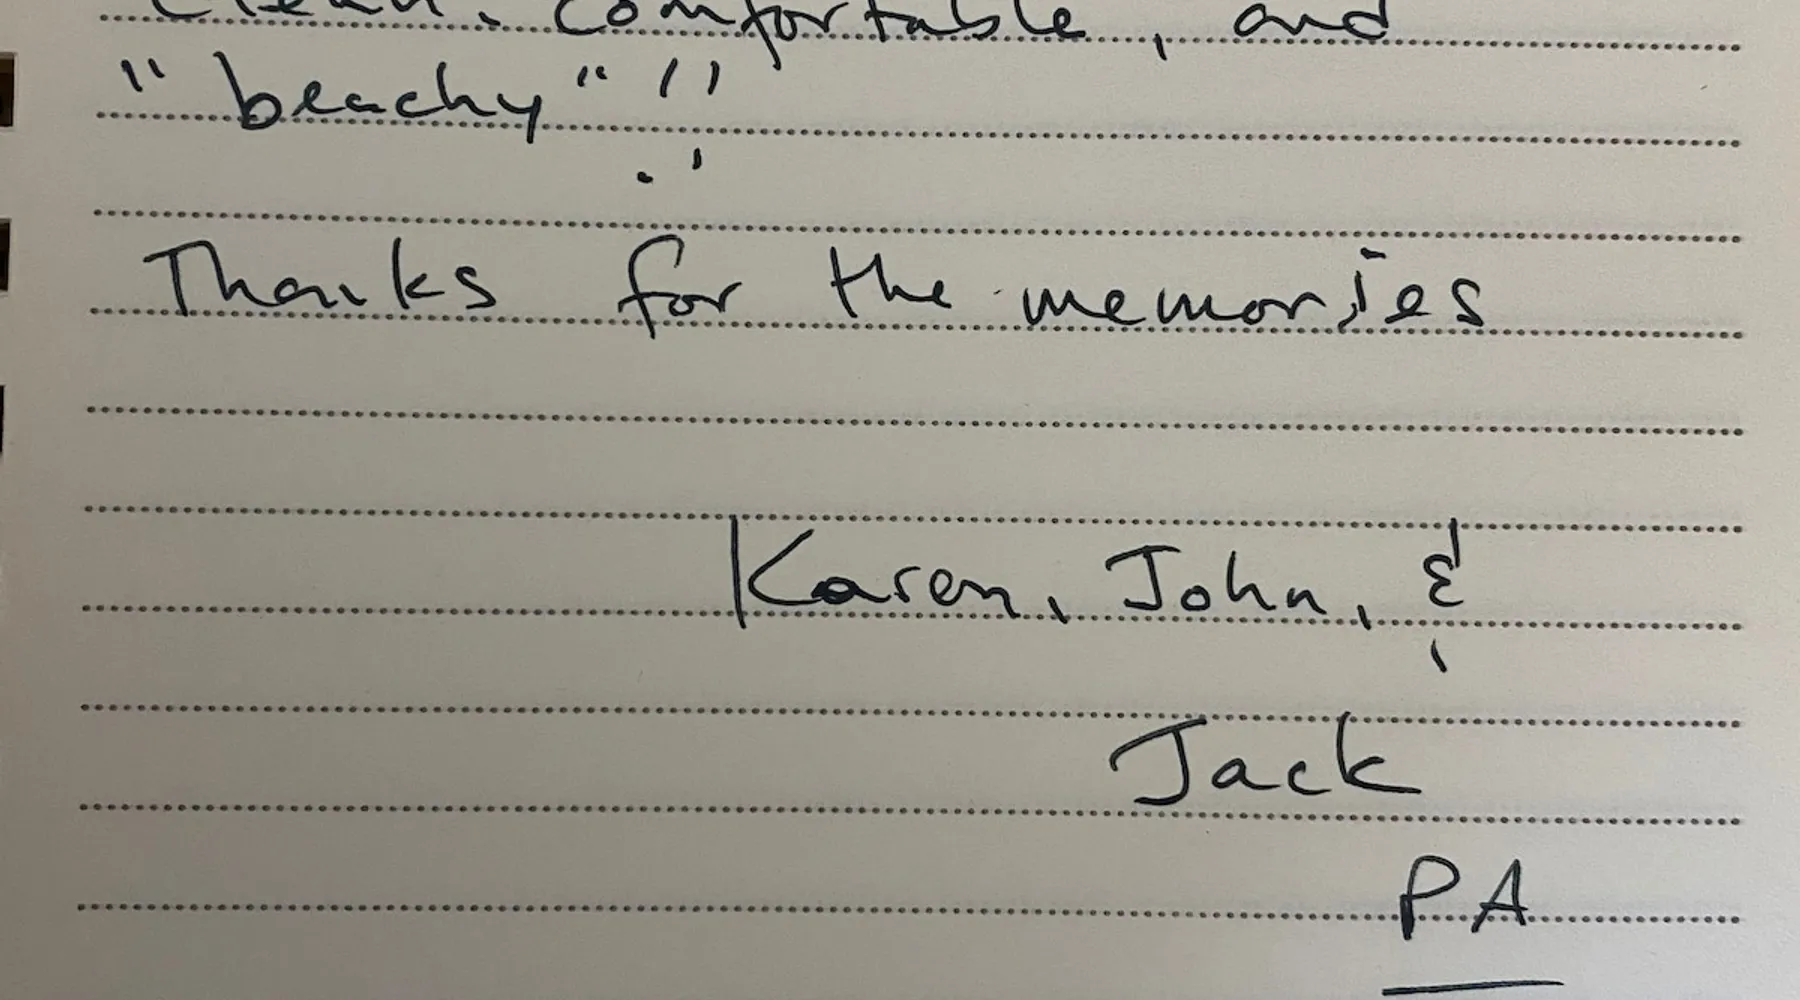 clean, comfortable, and
"beachy"!!
Thanks for the memories
Karen, John, &
Jack
PA